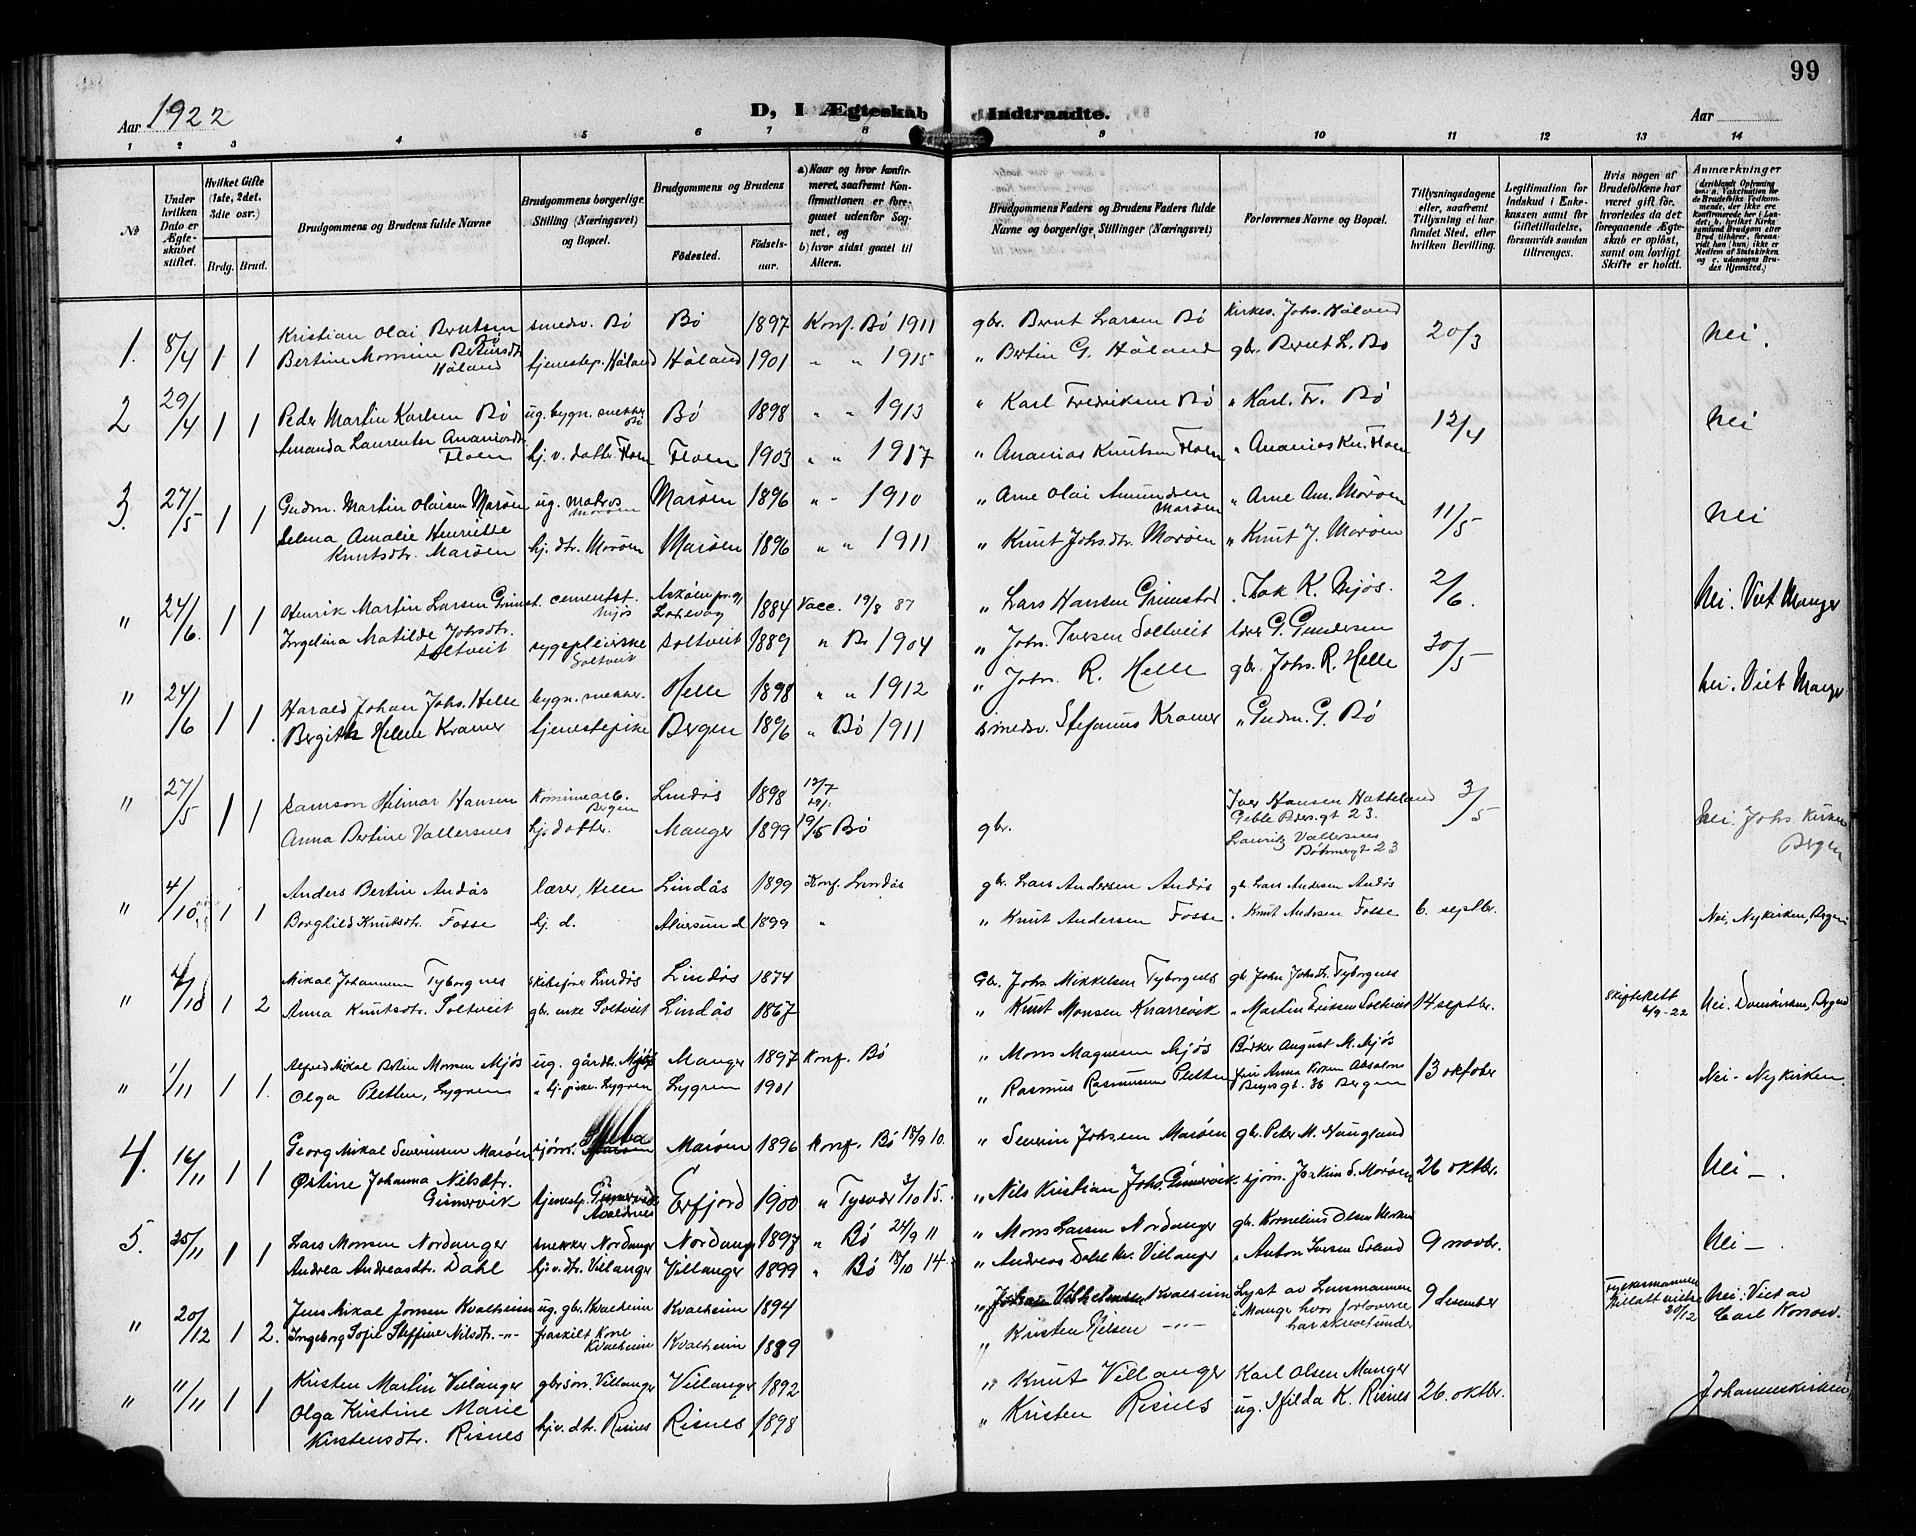 99
Aar 1922
D, I Ægteskab Indtraadte.
Aar
1 2 3 4 5 6 7 8 9 10 11 12 13 14
No
Under hvilken Dato er Ægteskabet stiftet.
Hvilket Gifte (1ste, 2det, 3die osv.)
Brdg. Brud.
Brudgommens og Brudens fulde Navne
Brudgommens borgerlige Stilling (Næringsvei) og Bopæl.
Brudgommens og Brudens
Fødested.
Fødselsaar.
a) Naar og hvor konfirmeret, saafremt Konfirmationen er foregaaet udenfor Sognet, og
b) hvor sidst gaaet til Alters.
Brudgommens Faders og Brudens Faders fulde Navne og borgerlige Stillinger (Næringsvei)
Forlovernes Navne og Bopæl.
Tillysningsdagene eller, saafremt Tillysning ei har fundet Sted, efter hvilken Bevilling.
Legitimation for Indskud i Enkekassen samt for Giftetilladelse, forsaavidt saadan tiltrænges.
Hvis nogen af Brudefolkene har været gift før, hvorledes da det foregaaende Ægteskab er opløst, samt om lovligt Skifte er holdt.
Anmærkninger
1. 8/4 1 1 Kristian Olai Berntsen Bø smedsv. Bø Bø 1897 Konf. Bø 1911 gbr. Bernt Larsen Bø Kirkes. Johs. Håland 20/3 Nei.
Bertine Monsine Bertinsdt. Håland tjenestep. Håland Håland 1901 " " 1915 " Bertin G. Håland gbr. Bernt L. Bø
2 29/4 1 1 Peder Martin Karlsen Bø ug. bygn. snekker Bø Bø 1898 " " 1913 " Karl Fredriksen Bø " Karl. Fr. Bø 12/4 Nei
Amanda Laurentse Ananiasdt. Floen hj. v. datter Floen Floen 1903 " " 1917 " Ananias Knutsen Floen " Ananias Kn. Floen
3. 27/5 1 1 Gudm. Martin Olaisen Marøen ug. matros Marøen Marøen 1896 " " 1910 " Arne Olai Amundsen Marøen " Arne Am. Marøen 11/5 Nei
Selma Amalie Henriette Knutsdtr. Marøen hj. dtr. Marøen Marøen 1896 " " 1911 " Knut Johsdtr. Marøen " Knut J. Marøen
" 24/6. 1 1 Henrik Martin Larsen Grimst. cementst. Mjøs Askøen pr.gj. 1884 Vacc. 19/8 87 " Lars Hansen Grimstad Isak K. Mjøs. 2/6. Nei. Viet Manger
Ingelina Matilde Johsdtr. Soltveit sygepleierske Soltveit Soltveit 1889 " Bø 1904 " Johs. Iversen Soltveit lærer G. Gundersen
" 24/6 1 1. Harald Johan Johs. Helle bygn. snekker. Helle 1898 " " 1912 " Johs. R. Helle gbr. Johs. R. Helle 30/5 Nei. Viet Manger
Bergith Helene Kramer tjenestepike Bergen 1896 " Bø 1911 smedsv. Stefanus Kramer " Gudm. G. Bø
" 27/5 1 1 Samson Hilmar Hansen Kommunearb. Bergen Lindås 1898 Iver Hansen Hatteland 3/5 Nei. Johs. Kirken Bergen
Geble Peders.gt 23.
Anna Bertine Vallersnes hj. datter. Manger 1899 19/5 Bø gbr. Lauritz Vallersnes
" 4/10 1 1 Anders Bertin Andås lærer, Helle Lindås 1899 Konf. Lindås gbr. Lars Andersen Andås gbr. Lars Andersen Andås
Borghild Knutsdtr. Fosse hj. d. Alversund 1899 " " Knut Andersen Fosse " Knut Andersen Fosse 6. septbr. Nei, Nykirken, Bergen
" 4/10 1 2 Mikal Johannesen Tyborgnes skibsfører Lindås Lindås 1874 Gbr. Johs. Mikkelsen Tyborgnes gbr. Johs. Tyborgnes
Anna Knutsdtr. Soltveit gbr. enke Soltveit Lindås 1867 " Knut Monsen Knarrevik " Martin Eriksen Soltveit 14 septbr. Skifterett 4/9-22 Nei. Domkirken, Bergen
" 1/11 1 1. Alfred Mikal Monsen Mjøs ug. Mjøs Manger 1897 Konf. Bø " Mons Magnesen Mjøs Bødker August M. Mjøs 13 oktober Nei - Nykirken.
Olga Pletten, Lygren " hj. pike. Lygren Lygren 1901 " Rasmus Rasmussen Pletten Fru Anna Absalons Beyers gt. 36 Bergen
4. 16/11 1 1 Georg Mikal Severinsen Marøen sjøm. Marøen 1896 Konf. Bø 18/9 10. " Severin Johsen Marøen gbr. Peter M. Haugland Nei -.
Østine Johanna Nilsdtr. Gimervik tjenestp. Gimervik Avaldsnes Erfjord 1900 " Tysvær 3/10 15. " Nils Kristian Johs. Gimervik sjøm. Joakim S. Marøen 26 oktbr.
5. 25/11 1 1 Lars Monsen Nordanger snekker Nordanger Nordang 1897 " Bø 24/9 11 " Mons Larsen Nordanger gbr. Kornelius Olsen 9 novbr. Nei -.
Andrea Andreasdtr. Dahl hj. v. dtr. Villanger Villanger 1899 " Bø 18/10 14. " Andreas Dahl Villanger " Anton Iversen
" 20/12 1 2. Jens Mikal Jonsen Kvalheim ug. gbr. Kvalheim Kvalheim 1894 " Johan Vilhelmsen Kvalheim Lyst av Lensmannen i Mange hvor forloverne har skrevet under 9 desember Fylkesmannen tillatt vielse 20/12 Nei. Viet av Carl Konow.
Ingeborg Sofie Steffine Nilsdtr. -"- fraskilt kone Kvalheim Kvalheim 1889 " Kristen Nilsen -"-
" 11/11 1 1 Kristen Martin Villanger gbr søn. Villanger Villanger 1892 " Knut Villanger Karl Olsen Manger Johanneskirken
Olga Kristine Marie Kirstensdtr. Risnes hj. v. dtr. Risnes Risnes 1898 " Kristen Risnes ug. Hilda K. Risnes 26. oktbr.